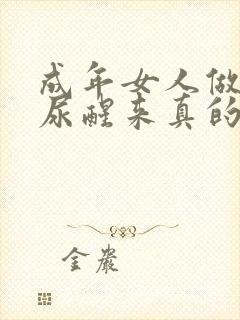 成年女人做
尿醒来真的
金岩